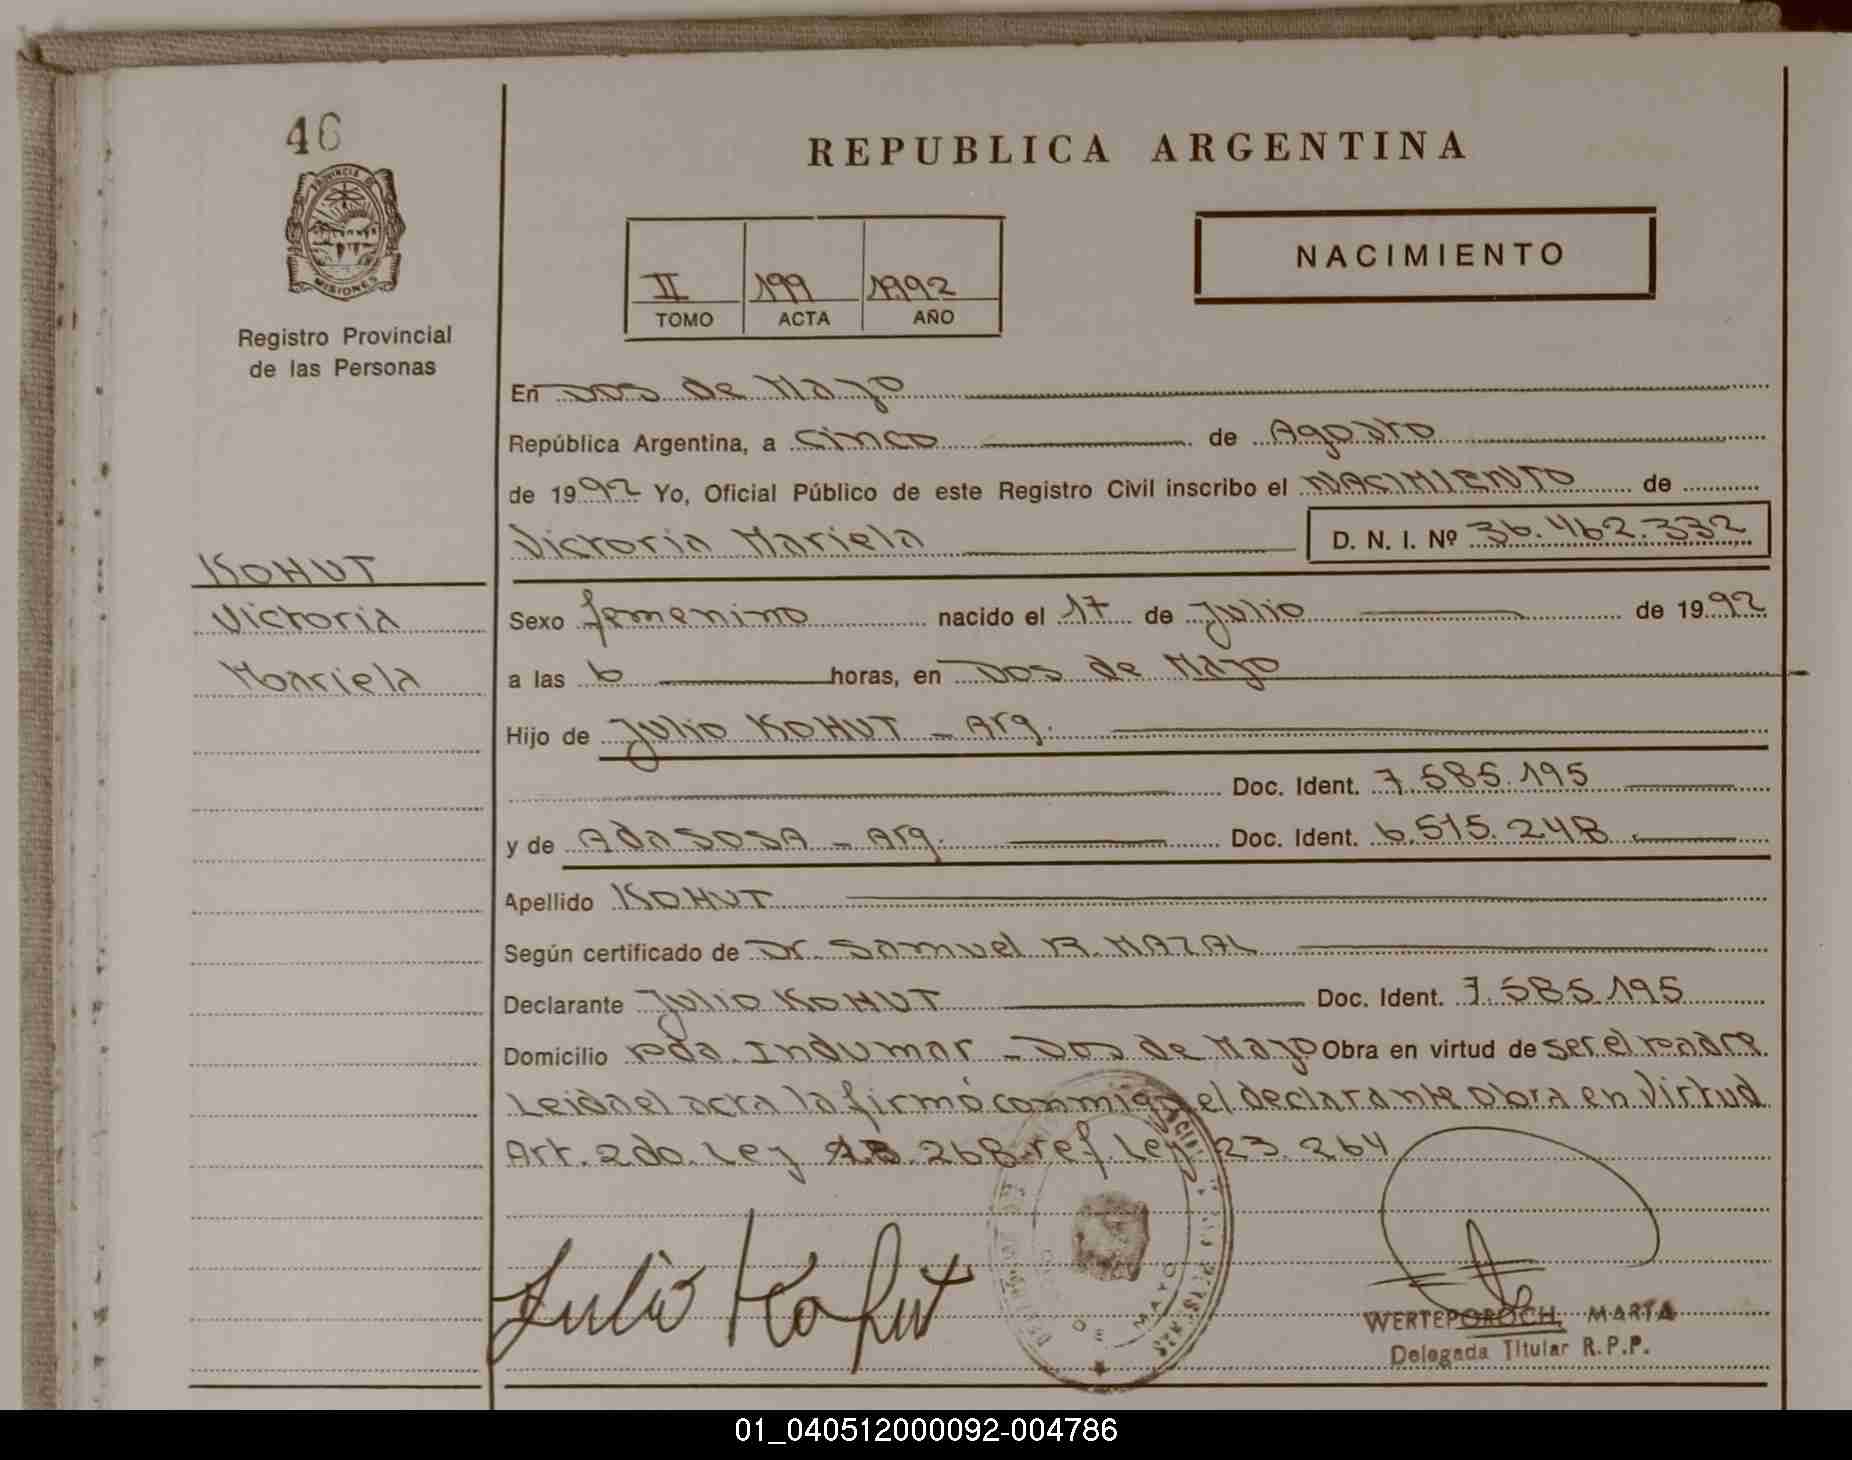 46
PROVINCIA DE
MISIONES
Registro Provincial
de las Personas
KOHUT
Victoria
Mariela
REPUBLICA ARGENTINA
NACIMIENTO
II 199 1992
TOMO ACTA AÑO
En Dos de Mayo
República Argentina, a cinco de Agosto
de 1992 Yo, Oficial Público de este Registro Civil inscribo el NACIMIENTO de
Victoria Mariela D. N. I. Nº 36.462.332
Sexo femenino nacido el 17 de Julio de 1992
a las 6 horas, en Dos de Mayo
Hijo de Julio KOHUT - Arg.
Doc. Ident. 7.585.195
y de Ada SOSA - Arg. Doc. Ident. 6.515.248
Apellido KOHUT
Según certificado de Dr. Samuel R. MAZAL
Declarante Julio KOHUT Doc. Ident. 7.585.195
Domicilio pda. Indumar - Dos de Mayo Obra en virtud de ser el padre.
Leida el acta la firmó conmigo el declarante obra en virtud
Art. 2do. Ley 18.268 ref. Ley 23.264
Julio Kohut
DE MAYO
WERTEPOROCH, MARTA
Delegada Titular R.P.P.
01_040512000092-004786